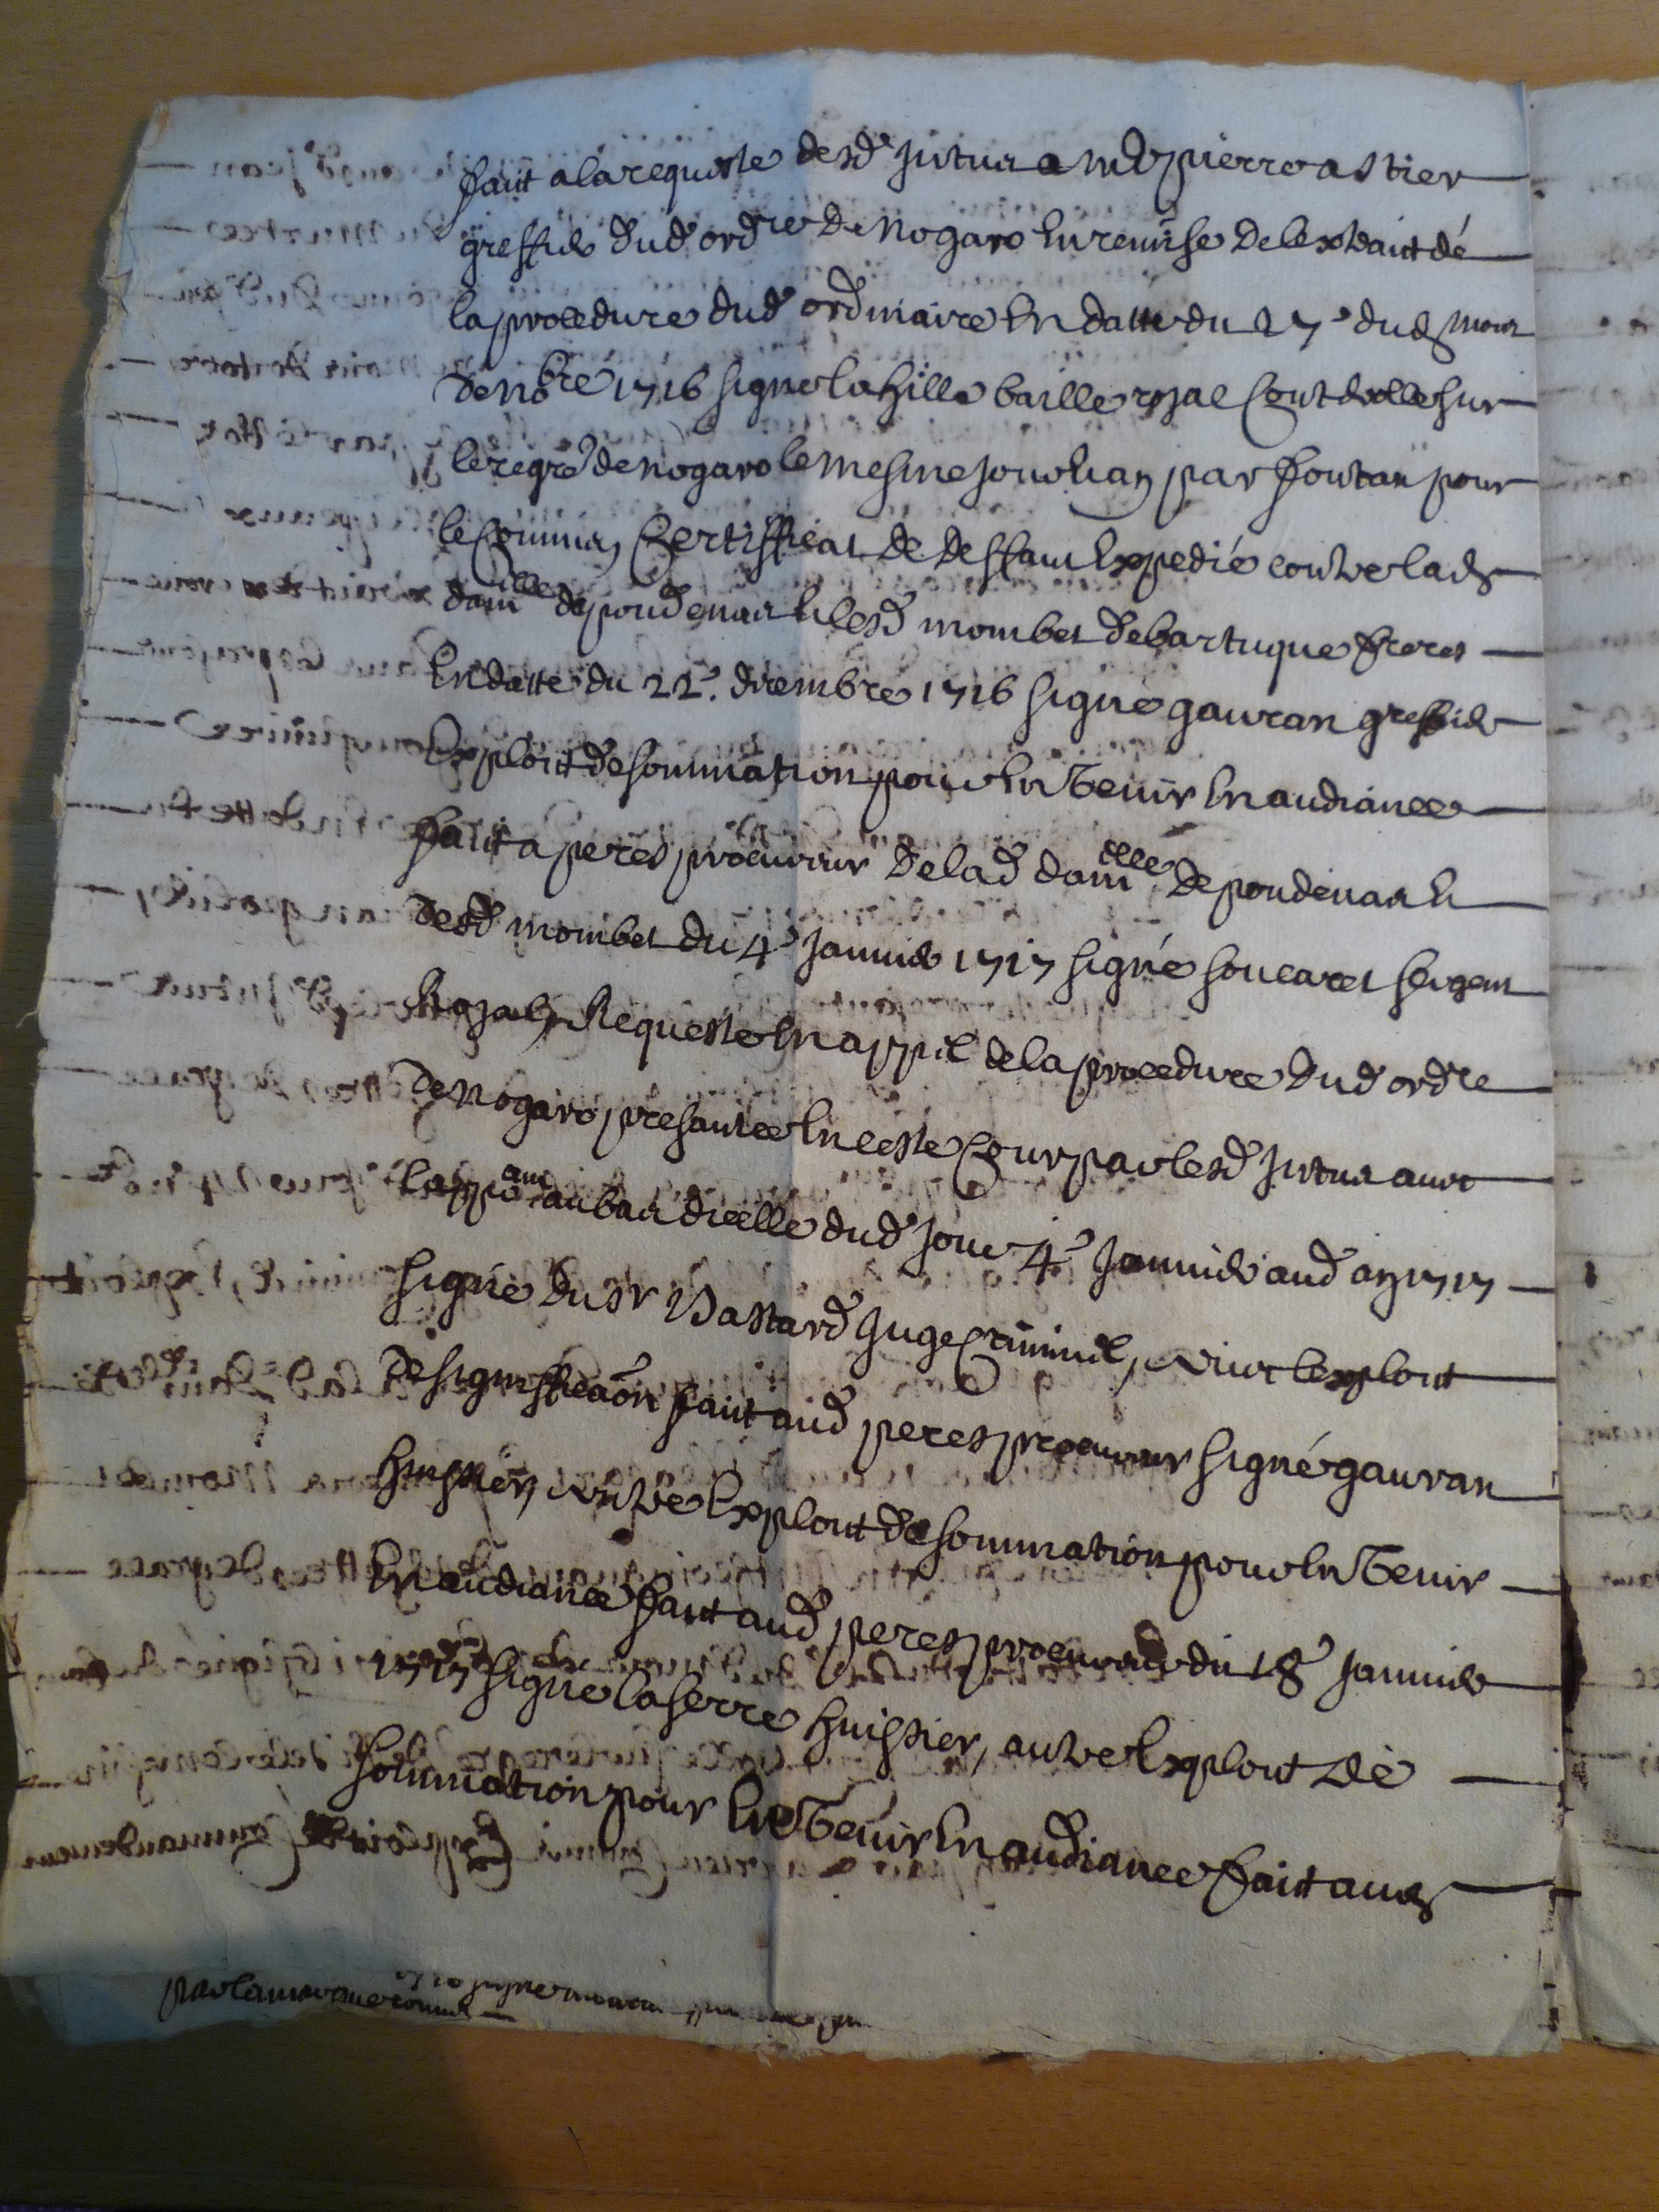 fait a la requeste desd. Juttua a Me pierre astier
greffier dud. ordre de nogaro En remise de lextrait de
la procedure dud. ordinaire En datte du 27e dud. mois
de nobre 1716 signe lahille baille royal Controlle sur
le regre de nogaro le mesme jour Et an par fontan pour
le Commis, Certifficat de deffaut Expedié contre lad.
damlle de poudenas Et lesd. mombet debartuque freres
En datte du 22e. decembre 1716 signé gauran greffier
Exploit de sommation pour En Venir En audiance
fait a peres procureur de lad. damelle de poudenas Et
desd. mombet du 4e Janvier 1717 signé soucaret sergent
Royal, Requeste En appel de la procedure dud. ordre
de nogaro, presantee En ceste Cour par lesd. Juttua avec
lappoant au bas dicelle dud. jour 4e Janvier aud. an 1717
signé du Sr Bastard Juge Criminel, avec lexploit
de signifficaon fait aud. peres procureur signé gauran
huissier, autre Exploit de sommation pour En Venir
En audiance fait aud. peres procureur du 18e Janvier
1717 signé laserre huissier, autre Exploit de
sommation pour En Venir En audiance fait aud.